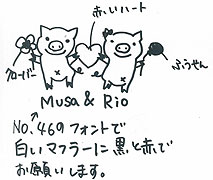 赤いハート
クローバー
ふうせん
Musa & Rio
NO.46のフォントで
白いマフラーに黒と赤で
お願いします。